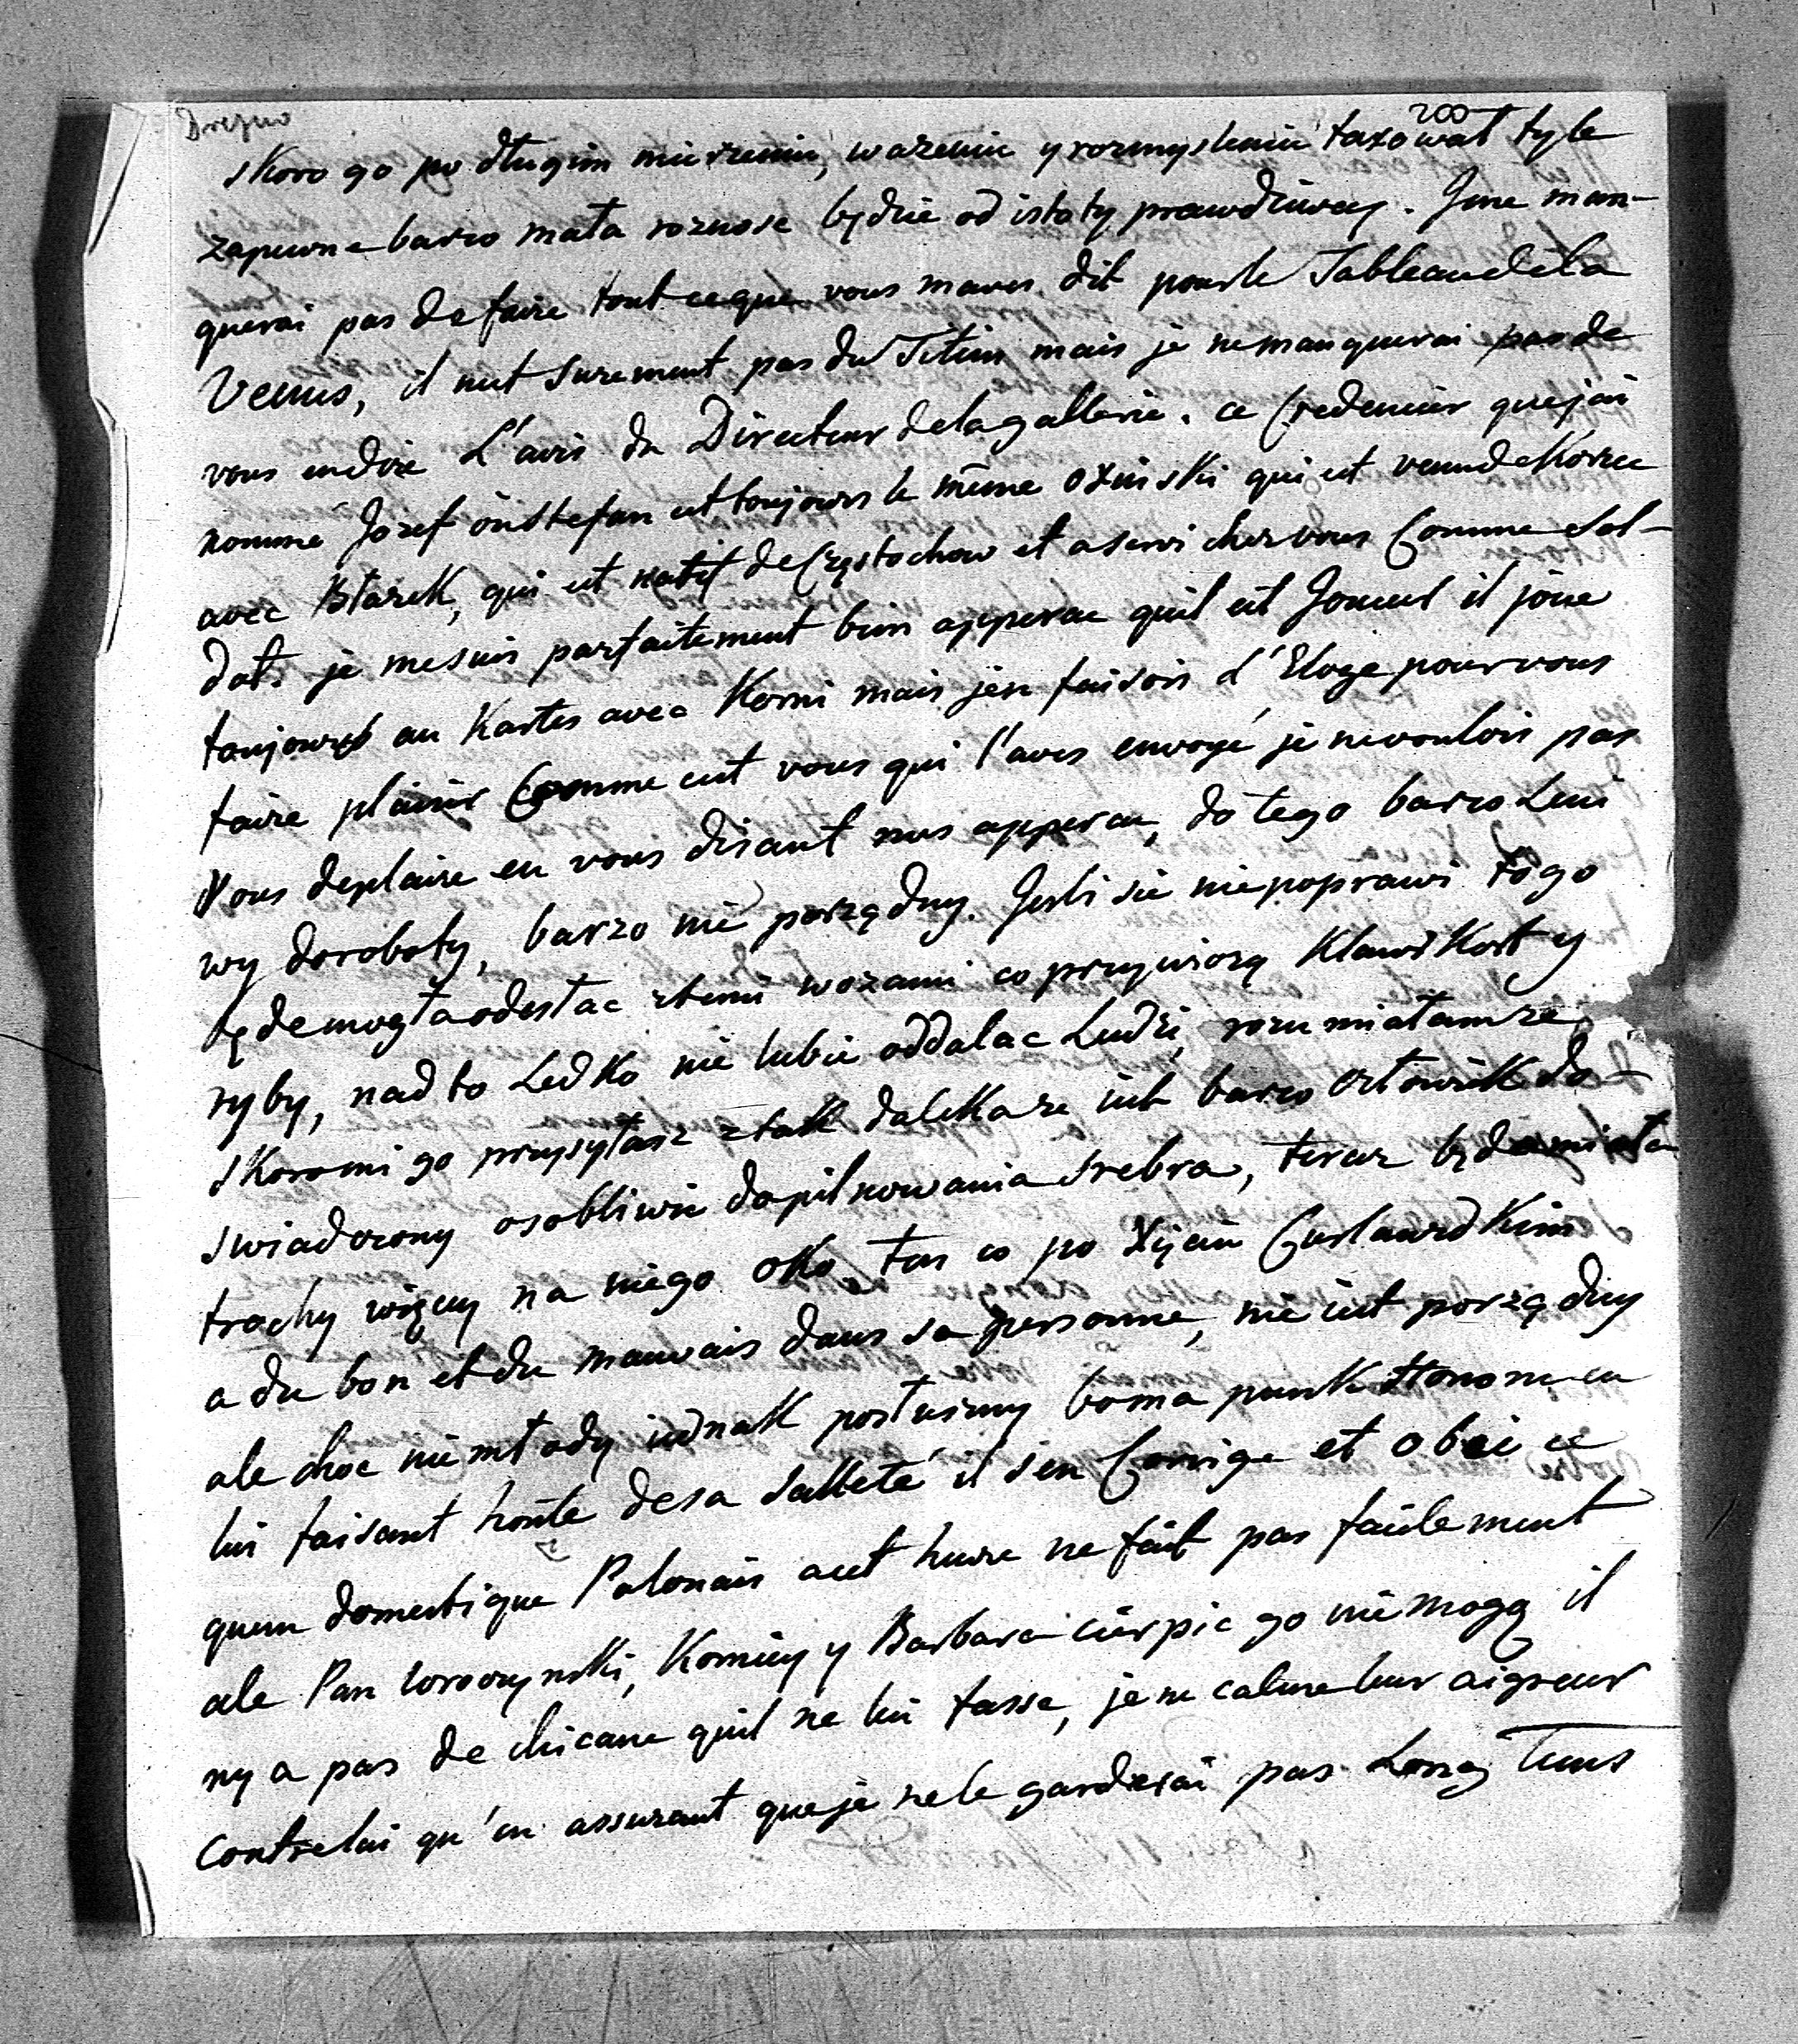 Drezno
200
skoro go po długim mierzeniu, wazeniu y rozmysleniu taxował tyle
zapewne barzo mała roznose będzie od istoty prawdziwey. Je ne man-
querai pas de faire tout ce que vous maves dit pour le Tableau dela
Venus, il nest surement pas du Titien mais je ne manquerai pas de
vous endire L'avis du Directeur dela gallerie. ce Credencier que jai
nommé Jozef où Stefan est toujours le même oziński qui est venu de Korzec
avec Btazek, qui est natif de Częstochow et a servi chez vous Comme Sol-
dat. je me suis parfaitement bien apperçue quil est Joueur il joüe
toujours au Kartes avec Korni mais jen faisois L'Eloge pour vous
faire plaisir Comme cest vous qui l'aves envoyé je ne voulois pas
Vous deplaire en vous disant mes apperçu, do tego barzo Leni
wy do roboty, barzo nie porządny. Jesli sie nie poprawi to go
będe mogła odesłac ztemi wozami co przywiozą Klawikort y
ryby, nad to Ledko nie lubie oddalac Ludzi, rozumiałam ze
skoro mi go przysyłasz z tak daleka ze iest barzo człowiek do-
swiadczony osobliwie do pilnowania srebra, teraz będe miała
trochy więcy na niego oko. Ten co po Xięciu
a du bon et du mauvais dans sa personne, nie iest porządny
ale choc nie młody iednak posłuszny bo ma punkt Honoru en
lui faisant honte de sa salleté il s'en Corrige et obei ce
quun domestique Polonais a cet heure ne fait pas facilement
ale Pan Koniey y Barbara cierpic go nie mogą il
ny a pas de chicane quil ne lui fasse, je ne calme leur aigreur
contre lui qu'en assurant que je ne le garderai pas Long Tems